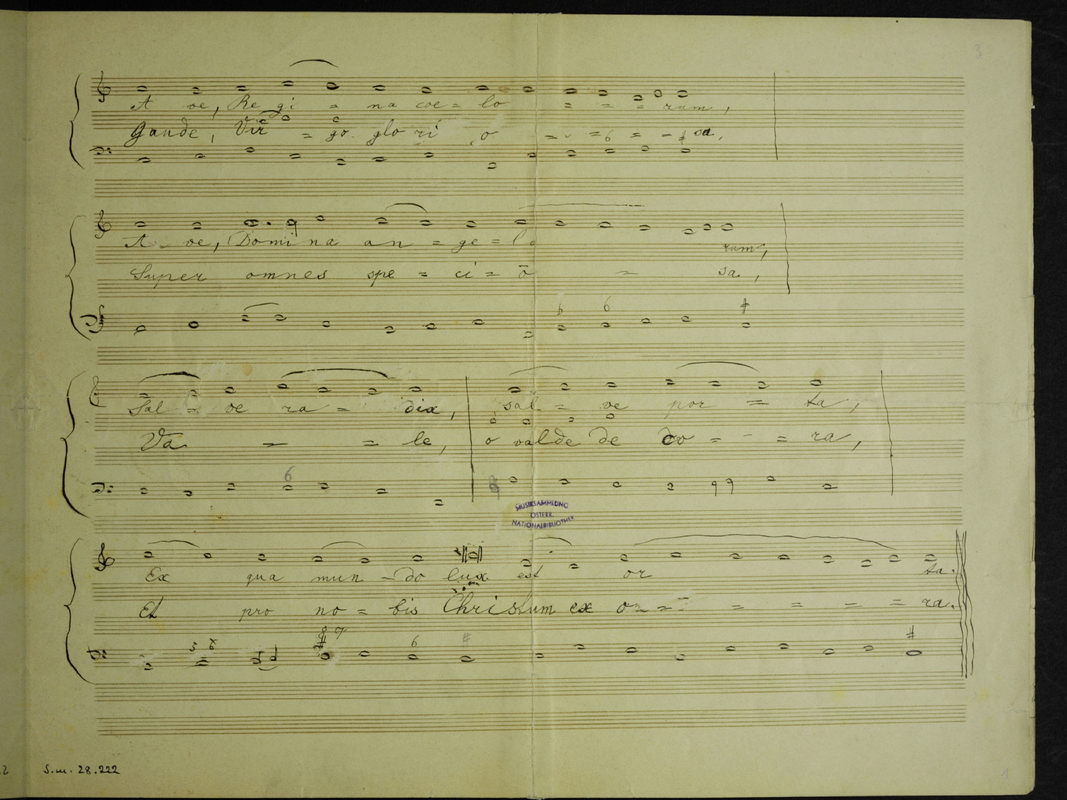 3
A ve, Re gi = na coe = lo = = = rum,
Gaude, Vir = go glo ri o = - = = - sa,
A - ve, Domina an = ge = lo rum,
Super omnes spe = ci = o = sa,
6 6 #
Sal = ve ra = dix, sal = ve por = ta,
Va = = le, o valde de co = - = ra,
6
MUSIKSAMMLUNG
ÖSTERR.
NATIONALBIBLIOTHEK
Ex qua mun - do lux est or ta.
Et pro no = bis Christum ex o = = = = - = ra.
6 # #
S.m. 28.222